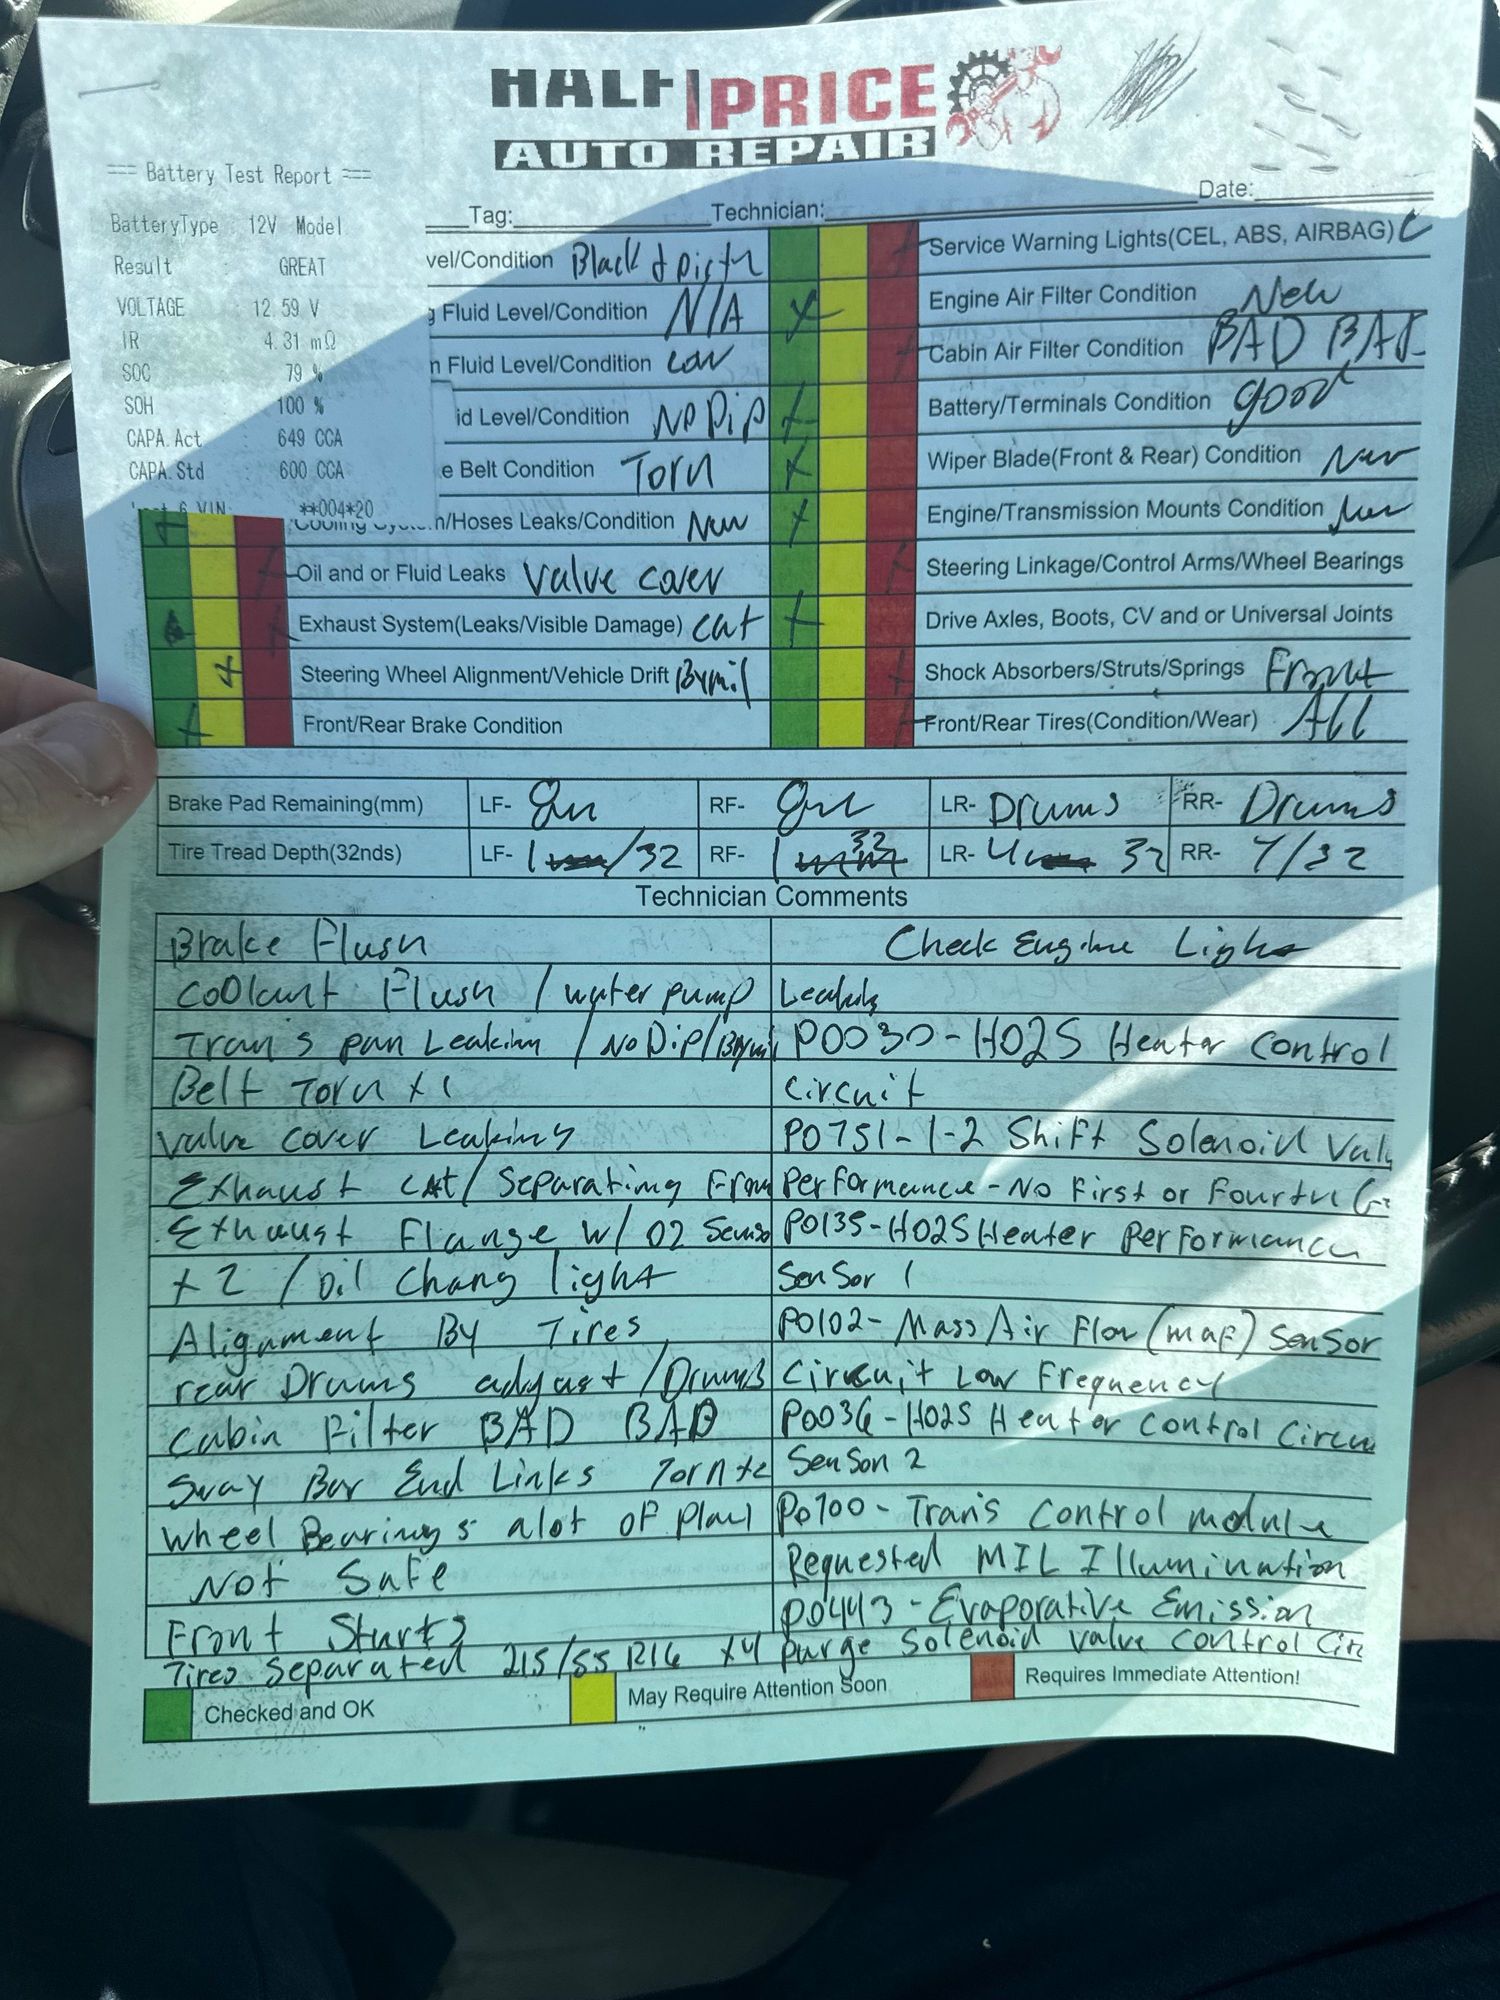 HALF PRICE
AUTO REPAIR
=== Battery Test Report ===
BatteryType : 12V Model
Result : GREAT
VOLTAGE : 12.59 V
IR : 4.31 mΩ
SOC : 79 %
SOH : 100 %
CAPA.Act : 649 CCA
CAPA.Std : 600 CCA
6 VIN: **004*20
Date:
Tag: Technician:
vel/Condition Black & Dirty
g Fluid Level/Condition N/A
n Fluid Level/Condition Low
id Level/Condition No Dip
e Belt Condition Torn
Cooling System/Hoses Leaks/Condition New
Oil and or Fluid Leaks Valve cover
Exhaust System(Leaks/Visible Damage) Cat
Steering Wheel Alignment/Vehicle Drift
Front/Rear Brake Condition
Service Warning Lights(CEL, ABS, AIRBAG) C
Engine Air Filter Condition New
Cabin Air Filter Condition BAD BAD
Battery/Terminals Condition good
Wiper Blade(Front & Rear) Condition New
Engine/Transmission Mounts Condition New
Steering Linkage/Control Arms/Wheel Bearings
Drive Axles, Boots, CV and or Universal Joints
Shock Absorbers/Struts/Springs Front
Front/Rear Tires(Condition/Wear) All
Brake Pad Remaining(mm) LF- RF- LR- Drums RR- Drums
Tire Tread Depth(32nds) LF- 1 /32 RF- 1 32 LR- 4 32 RR- 4/32
Technician Comments
Brake Flush
Coolant Flush / water pump
Trans pan Leaking / No Dip/
Belt Torn x1
Valve cover Leaking
Exhaust cat/ Separating From
Exhaust Flange w/ O2 Senso
x2 / oil chang light
Alignment By Tires
rear Drums adjust / Drums
Cabin Filter BAD BAD
Sway Bar End Links Torn x2
Wheel Bearings alot of Play
Not Safe
Front Struts
Tires Separated 215/55 R16 x4
Check Engine Light
Leaking
P0030-HO2S Heater Control
Circuit
P0751-1-2 Shift Solenoid Valv
Performance-No First or Fourth G
P0135-HO2S Heater Performance
Sensor 1
P0102-Mass Air Flow (maf) Sensor
Circuit Low Frequency
P0036-HO2S Heater Control Circu
Senson 2
P0700-Trans Control module
Requested MIL Illumination
P0443-Evaporative Emission
Purge Solenoid Valve Control Circ
Checked and OK
May Require Attention Soon
Requires Immediate Attention!